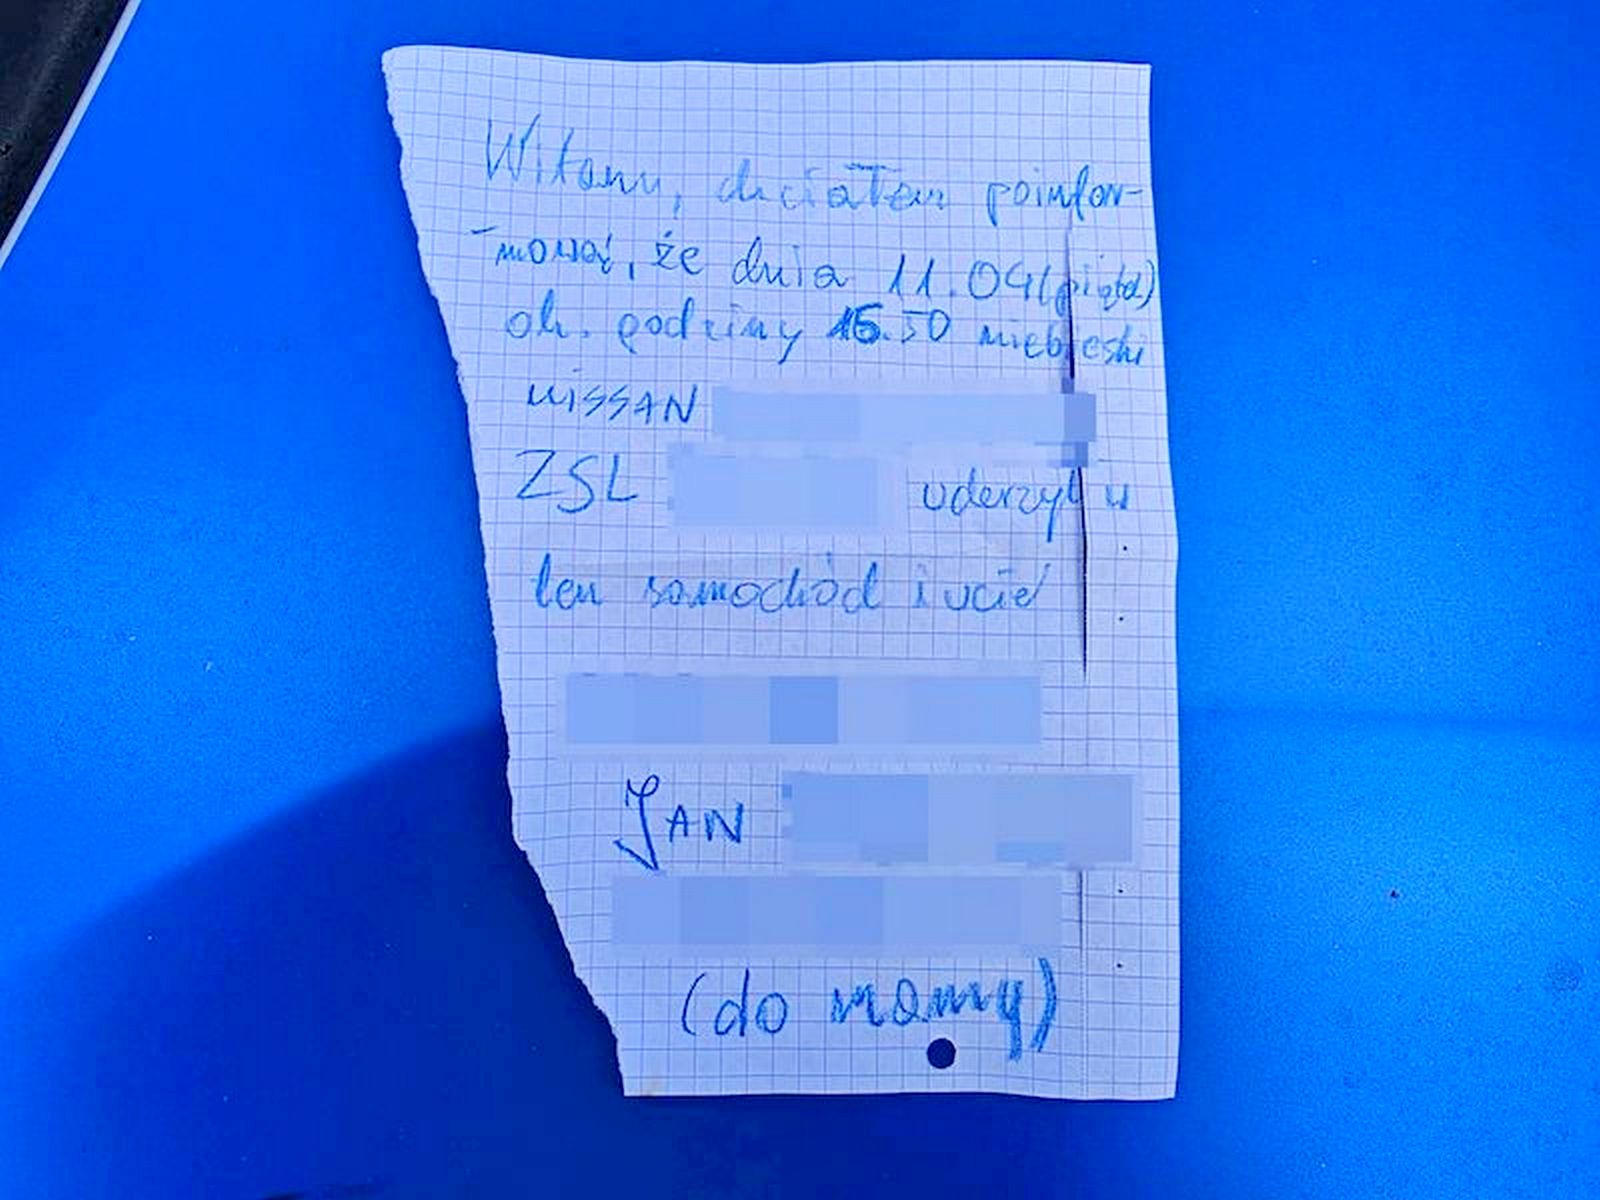 Witam, chciałem poinfor-
-mować, że dnia 11.04 (piątek)
ok. godziny 16.50 niebieski
NISSAN
ZSL uderzył w
ten samochód i uciekł
JAN
(do mamy)